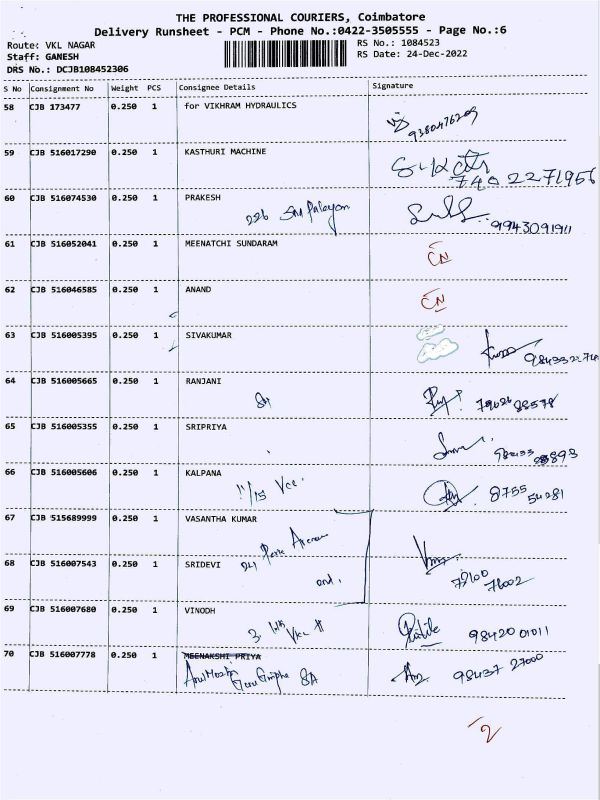 THE PROFESSIONAL COURIERS, Coimbatore
Delivery Runsheet - PCM - Phone No.:0422-3505555 - Page No.:6
Route: VKL NAGAR RS No.: 1084523
Staff: GANESH RS Date: 24-Dec-2022
DRS No.: DCJB108452306
S No Consignment No Weight PCS Consignee Details Signature
58 CJB 173477 0.250 1 for VIKHRAM HYDRAULICS
9380476209
59 CJB 516017290 0.250 1 KASTHURI MACHINE
7402271956
60 CJB 516074530 0.250 1 PRAKESH
226 9943091911
61 CJB 516052041 0.250 1 MEENATCHI SUNDARAM
CN
62 CJB 516046585 0.250 1 ANAND
CN
63 CJB 516005395 0.250 1 SIVAKUMAR
64 CJB 516005665 0.250 1 RANJANI
65 CJB 516005355 0.250 1 SRIPRIYA
66 CJB 516005606 0.250 1 KALPANA
11/15 8755 54281
67 CJB 515689999 0.250 1 VASANTHA KUMAR
68 CJB 516007543 0.250 1 SRIDEVI
79100
76002
69 CJB 516007680 0.250 1 VINODH
3 98420 01011
70 CJB 516007778 0.250 1 MEENAKSHI PRIYA
8A 98437 27000